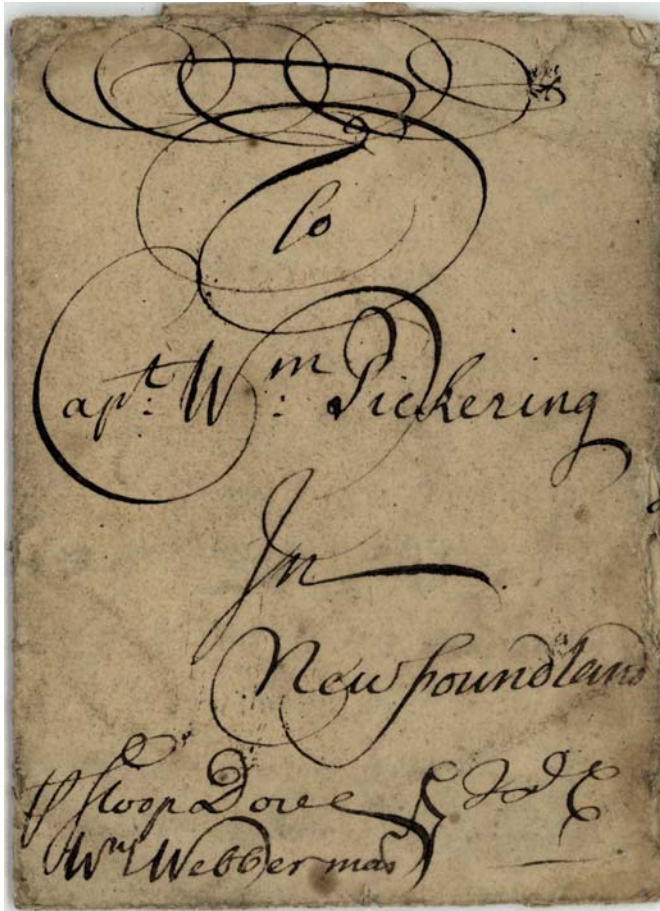 To
Capt. Wm: Pickering
In
Newfoundland
Sloop Dove
Wm Webber mas